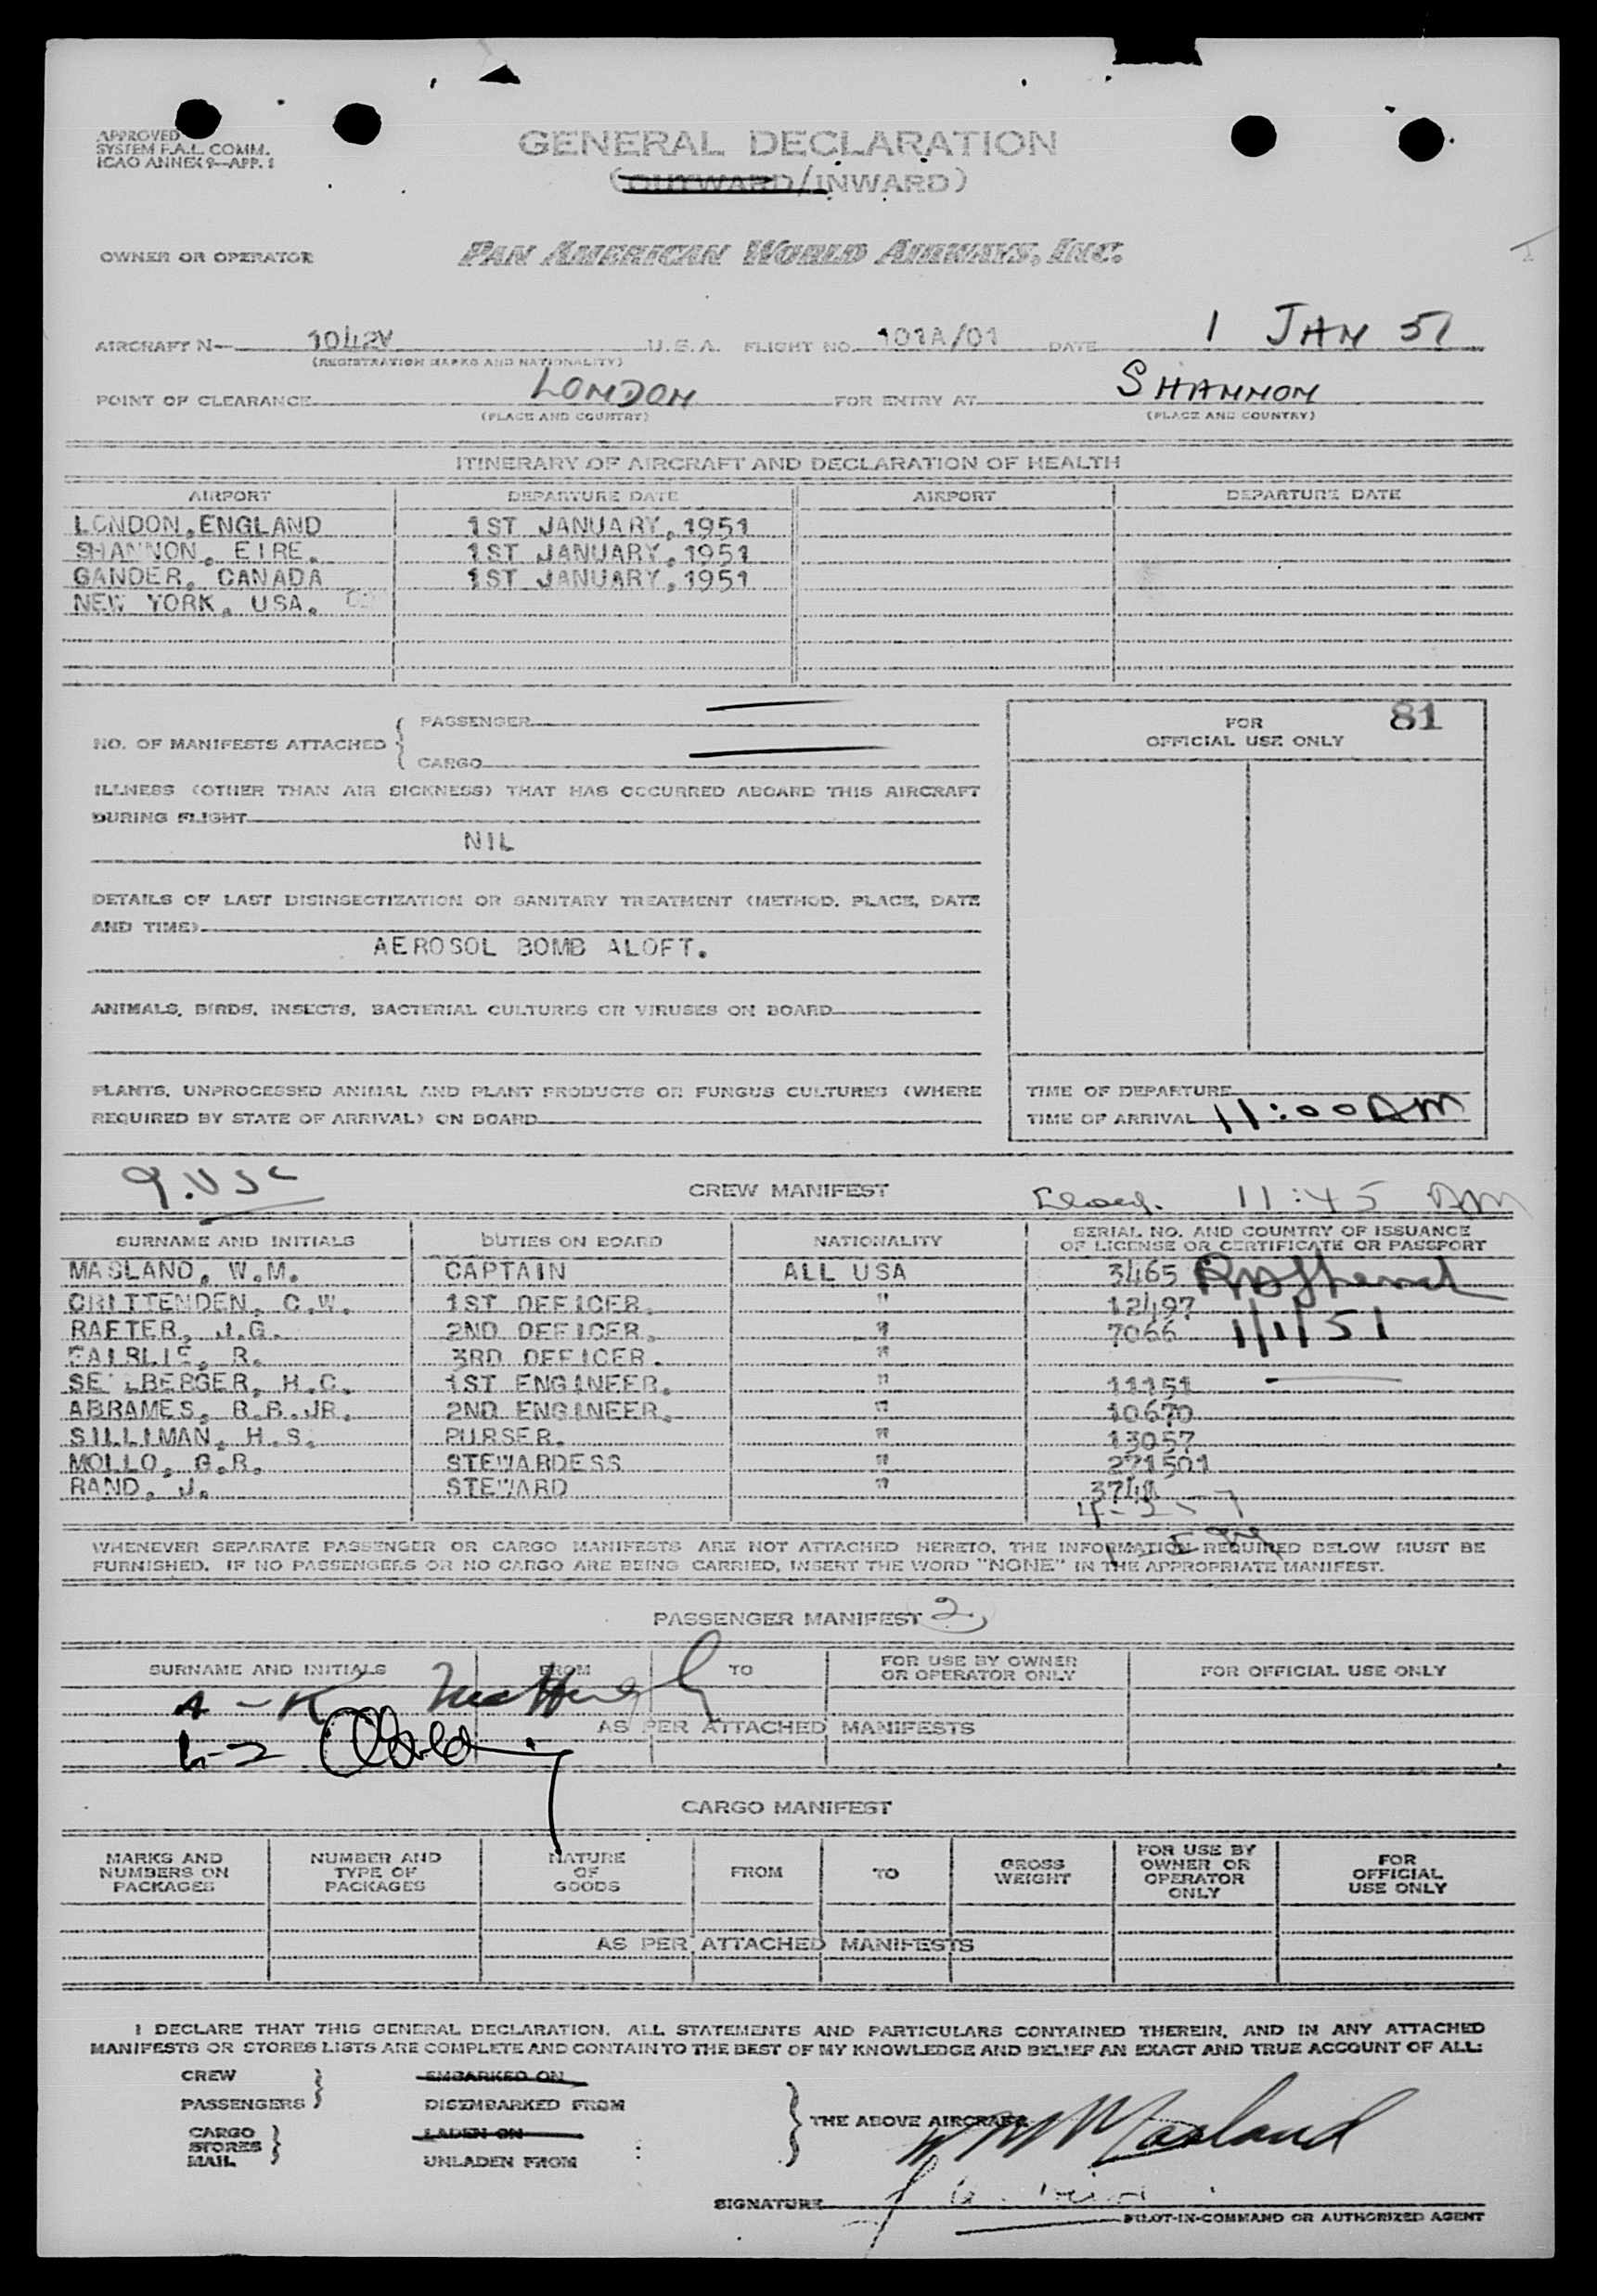 APPROVED
SYSTEM F.A.L. COMM.
ICAO ANNEX 9—APP. 1
GENERAL DECLARATION
(OUTWARD/INWARD)
OWNER OR OPERATOR PAN AMERICAN WORLD AIRWAYS, INC.
AIRCRAFT N— 1042V U.S.A. FLIGHT NO. 101A/01 DATE 1 JAN 51
(REGISTRATION MARKS AND NATIONALITY)
POINT OF CLEARANCE LONDON FOR ENTRY AT SHANNON
(PLACE AND COUNTRY) (PLACE AND COUNTRY)
ITINERARY OF AIRCRAFT AND DECLARATION OF HEALTH
AIRPORT DEPARTURE DATE AIRPORT DEPARTURE DATE
LONDON, ENGLAND 1ST JANUARY, 1951
SHANNON, EIRE. 1ST JANUARY, 1951
GANDER, CANADA 1ST JANUARY, 1951
NEW YORK, USA.
NO. OF MANIFESTS ATTACHED { PASSENGER
CARGO
FOR OFFICIAL USE ONLY 81
ILLNESS (OTHER THAN AIR SICKNESS) THAT HAS OCCURRED ABOARD THIS AIRCRAFT
DURING FLIGHT
NIL
DETAILS OF LAST DISINSECTIZATION OR SANITARY TREATMENT (METHOD, PLACE, DATE
AND TIME)
AEROSOL BOMB ALOFT.
ANIMALS, BIRDS, INSECTS, BACTERIAL CULTURES OR VIRUSES ON BOARD
PLANTS, UNPROCESSED ANIMAL AND PLANT PRODUCTS OR FUNGUS CULTURES (WHERE
REQUIRED BY STATE OF ARRIVAL) ON BOARD
TIME OF DEPARTURE
TIME OF ARRIVAL 11:00 AM
CREW MANIFEST
11:45 AM
SURNAME AND INITIALS DUTIES ON BOARD NATIONALITY SERIAL NO. AND COUNTRY OF ISSUANCE
OF LICENSE OR CERTIFICATE OR PASSPORT
MASLAND, W.M. CAPTAIN ALL USA 3465
CRITTENDEN, C.W. 1ST OFFICER. " 12497
RAFTER, J.G. 2ND OFFICER. " 7066 1/1/51
FAIRLIE, R. 3RD OFFICER. "
H.C. 1ST ENGINEER. " 11151
ABRAMES, R.B. JR. 2ND ENGINEER. " 10670
SILLIMAN, H.S. PURSER. " 13057
MOLLO, G.R. STEWARDESS " 271501
RAND, J. STEWARD "
WHENEVER SEPARATE PASSENGER OR CARGO MANIFESTS ARE NOT ATTACHED HERETO, THE INFORMATION REQUIRED BELOW MUST BE
FURNISHED. IF NO PASSENGERS OR NO CARGO ARE BEING CARRIED, INSERT THE WORD "NONE" IN THE APPROPRIATE MANIFEST.
PASSENGER MANIFEST 2
SURNAME AND INITIALS FROM TO FOR USE BY OWNER OR OPERATOR ONLY FOR OFFICIAL USE ONLY
AS PER ATTACHED MANIFESTS
CARGO MANIFEST
MARKS AND NUMBERS ON PACKAGES NUMBER AND TYPE OF PACKAGES NATURE OF GOODS FROM TO GROSS WEIGHT FOR USE BY OWNER OR OPERATOR ONLY FOR OFFICIAL USE ONLY
AS PER ATTACHED MANIFESTS
I DECLARE THAT THIS GENERAL DECLARATION, ALL STATEMENTS AND PARTICULARS CONTAINED THEREIN, AND IN ANY ATTACHED
MANIFESTS OR STORES LISTS ARE COMPLETE AND CONTAIN TO THE BEST OF MY KNOWLEDGE AND BELIEF AN EXACT AND TRUE ACCOUNT OF ALL:
CREW EMBARKED ON
PASSENGERS } DISEMBARKED FROM
THE ABOVE AIRCRAFT W M Masland
CARGO LADEN ON
STORES
MAIL UNLADEN FROM
SIGNATURE
PILOT-IN-COMMAND OR AUTHORIZED AGENT